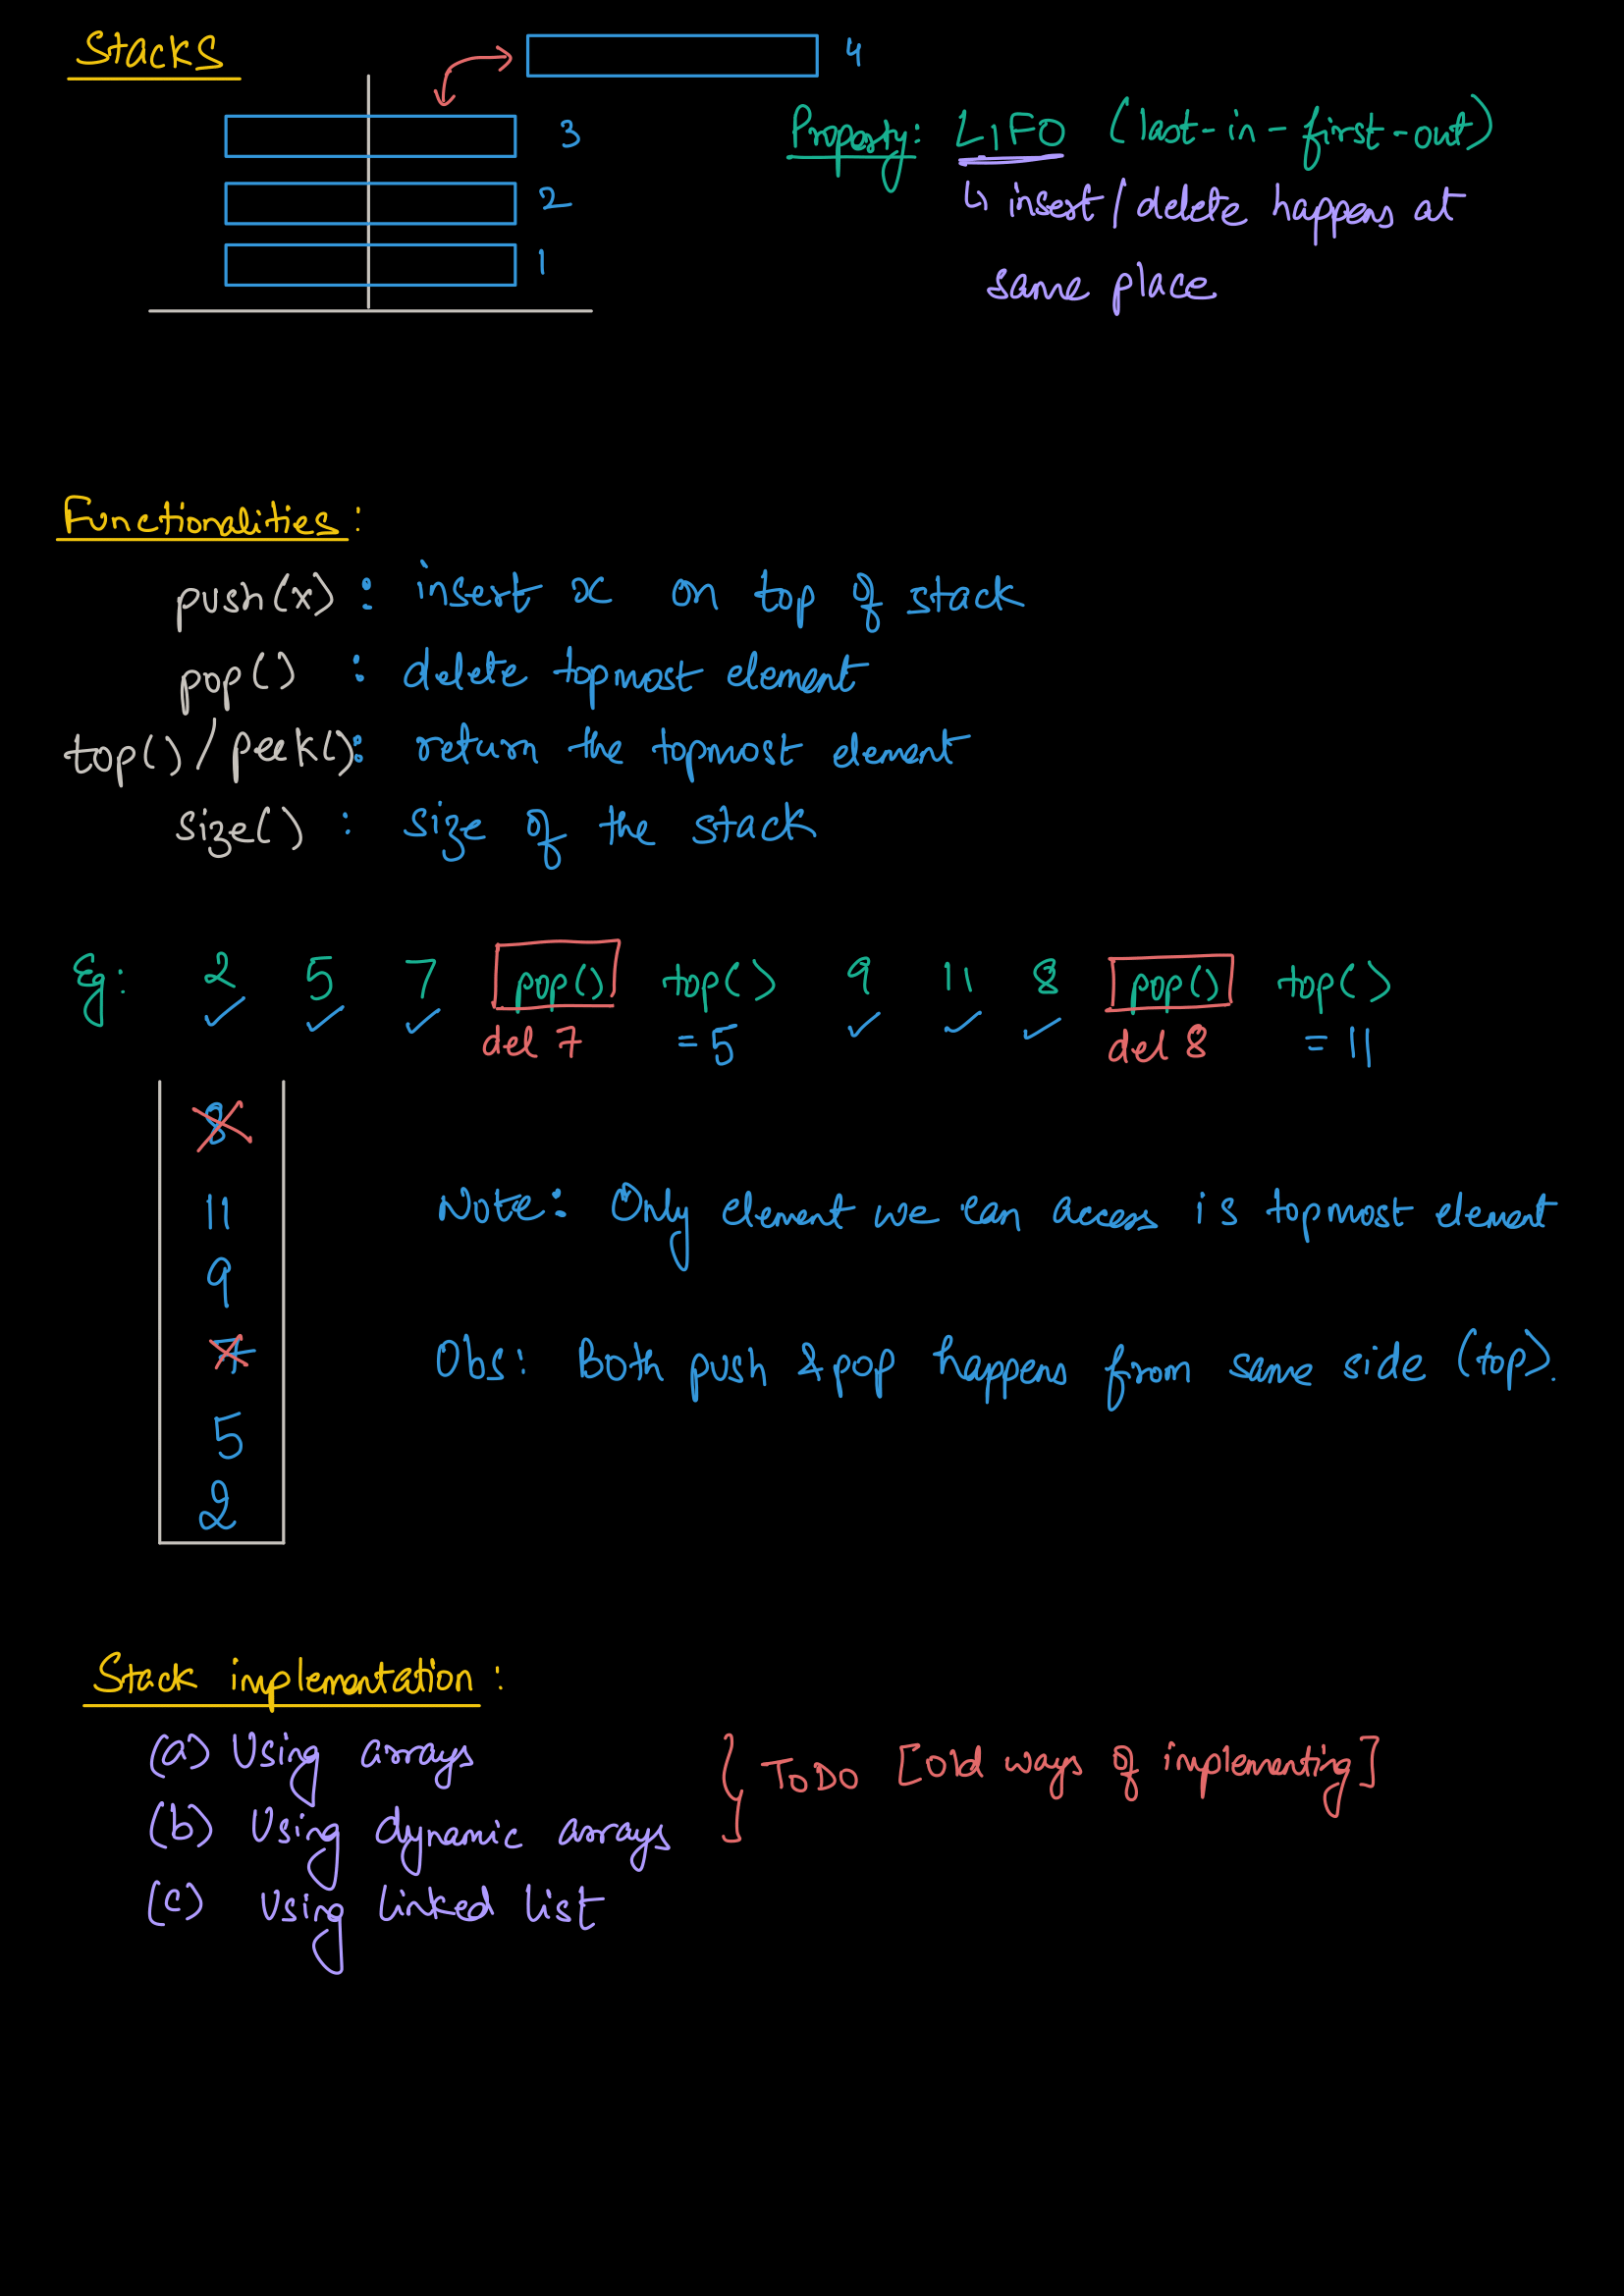 Stacks
4
3
2
1
Property: LIFO (last-in-first-out)
↳ insert/delete happens at
same place
Functionalities:
push(x) : insert x on top of stack
pop() : delete topmost element
top()/peek(): return the topmost element
size() : size of the stack
Eg: 2 5 7 pop() top() 9 11 8 pop() top()
✓ ✓ ✓ del 7 = 5 ✓ ✓ ✓ del 8 = 11
8
11
9
7
5
2
Note: Only element we can access is topmost element
Obs: Both push & pop happens from same side (top).
Stack implementation:
(a) Using arrays
(b) Using dynamic arrays
} TODO [old ways of implementing]
(c) Using linked list